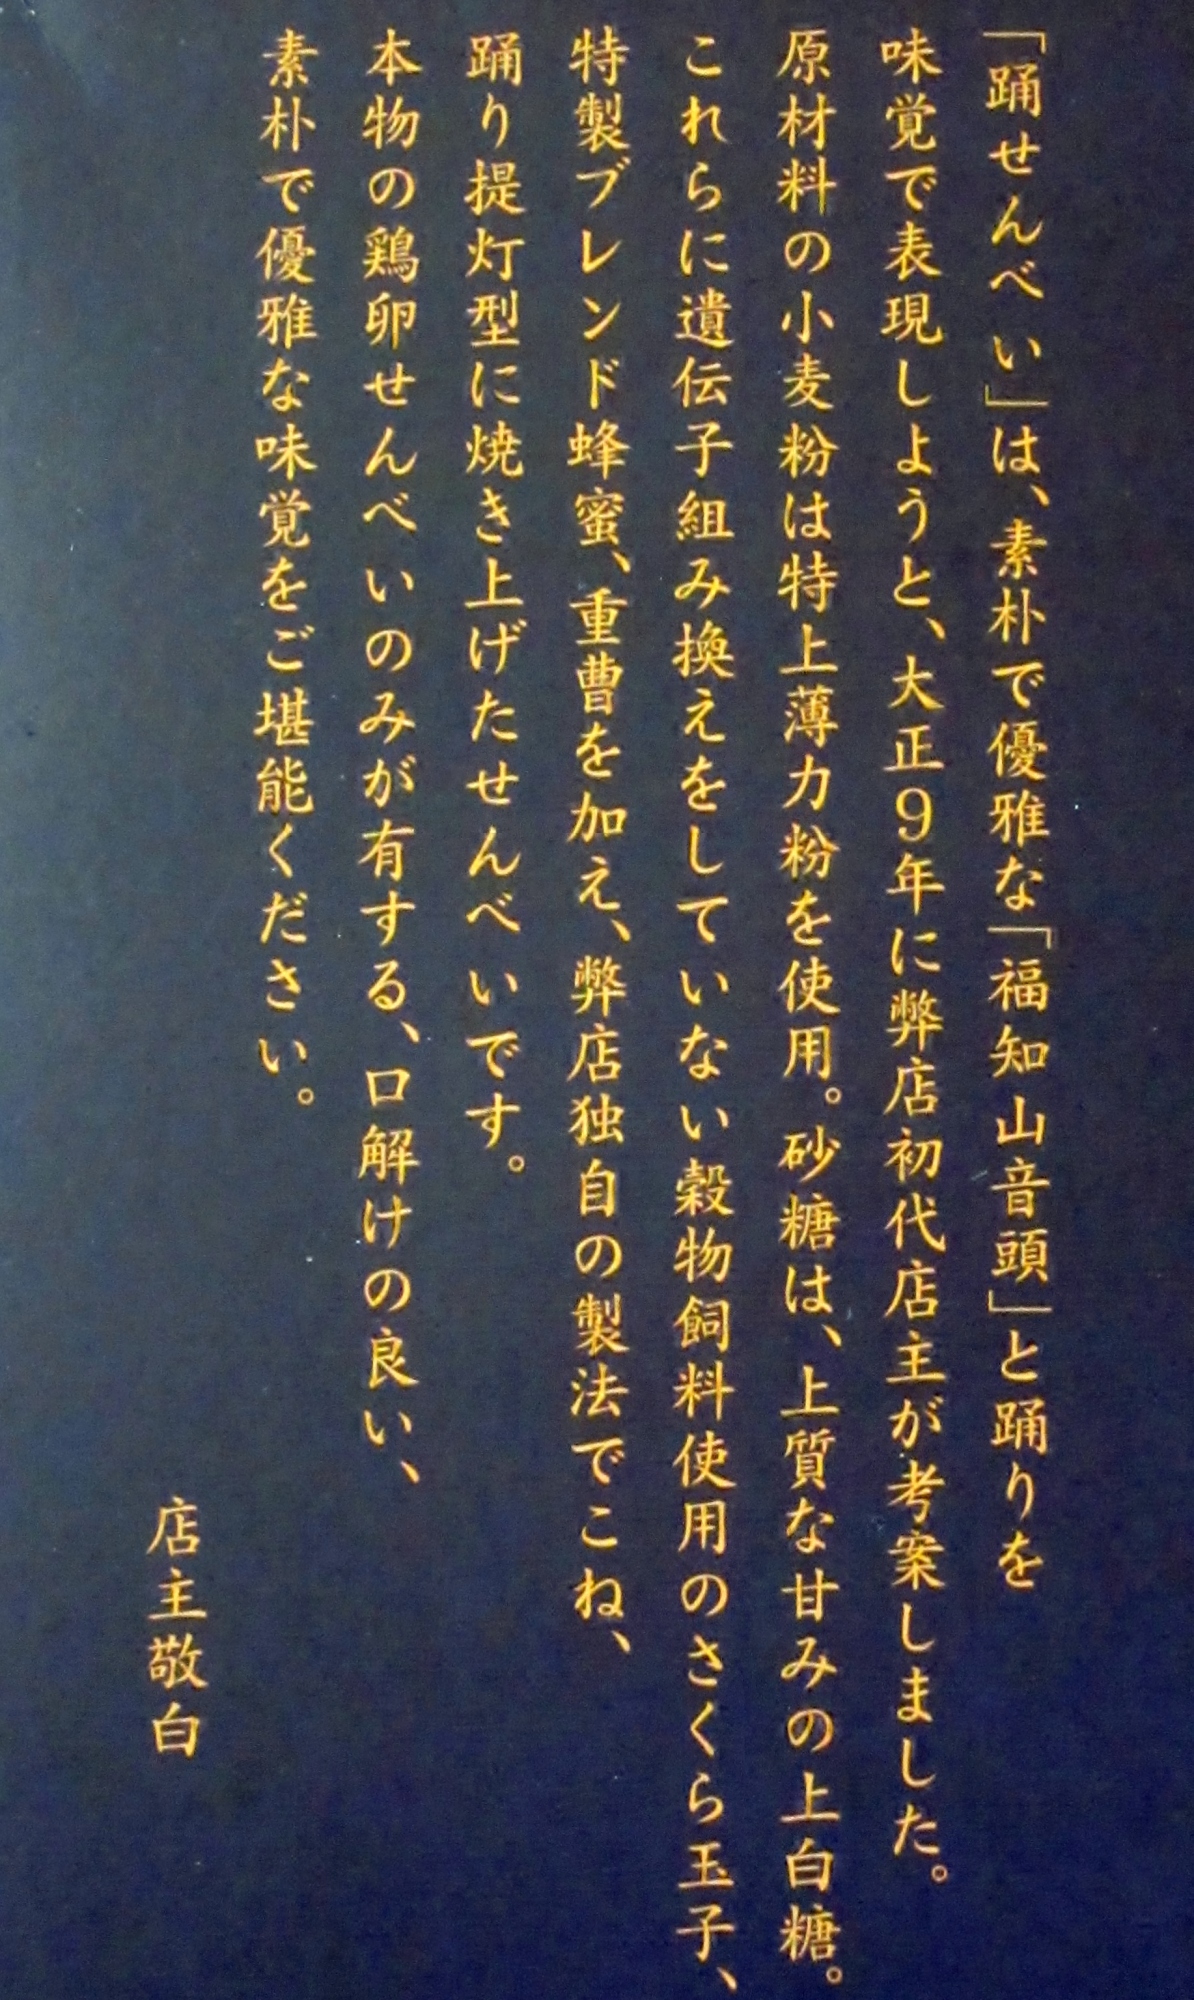 「踊せんべい」は、素朴で優雅な「福知山音頭」と踊りを
味覚で表現しようと、大正9年に弊店初代店主が考案しました。
原材料の小麦粉は特上薄力粉を使用。砂糖は、上質な甘みの上白糖。
これらに遺伝子組み換えをしていない穀物飼料使用のさくら玉子、
特製ブレンド蜂蜜、重曹を加え、弊店独自の製法でこね、
踊り提灯型に焼き上げたせんべいです。
本物の鶏卵せんべいのみが有する、口解けの良い、
素朴で優雅な味覚をご堪能ください。
店主敬白